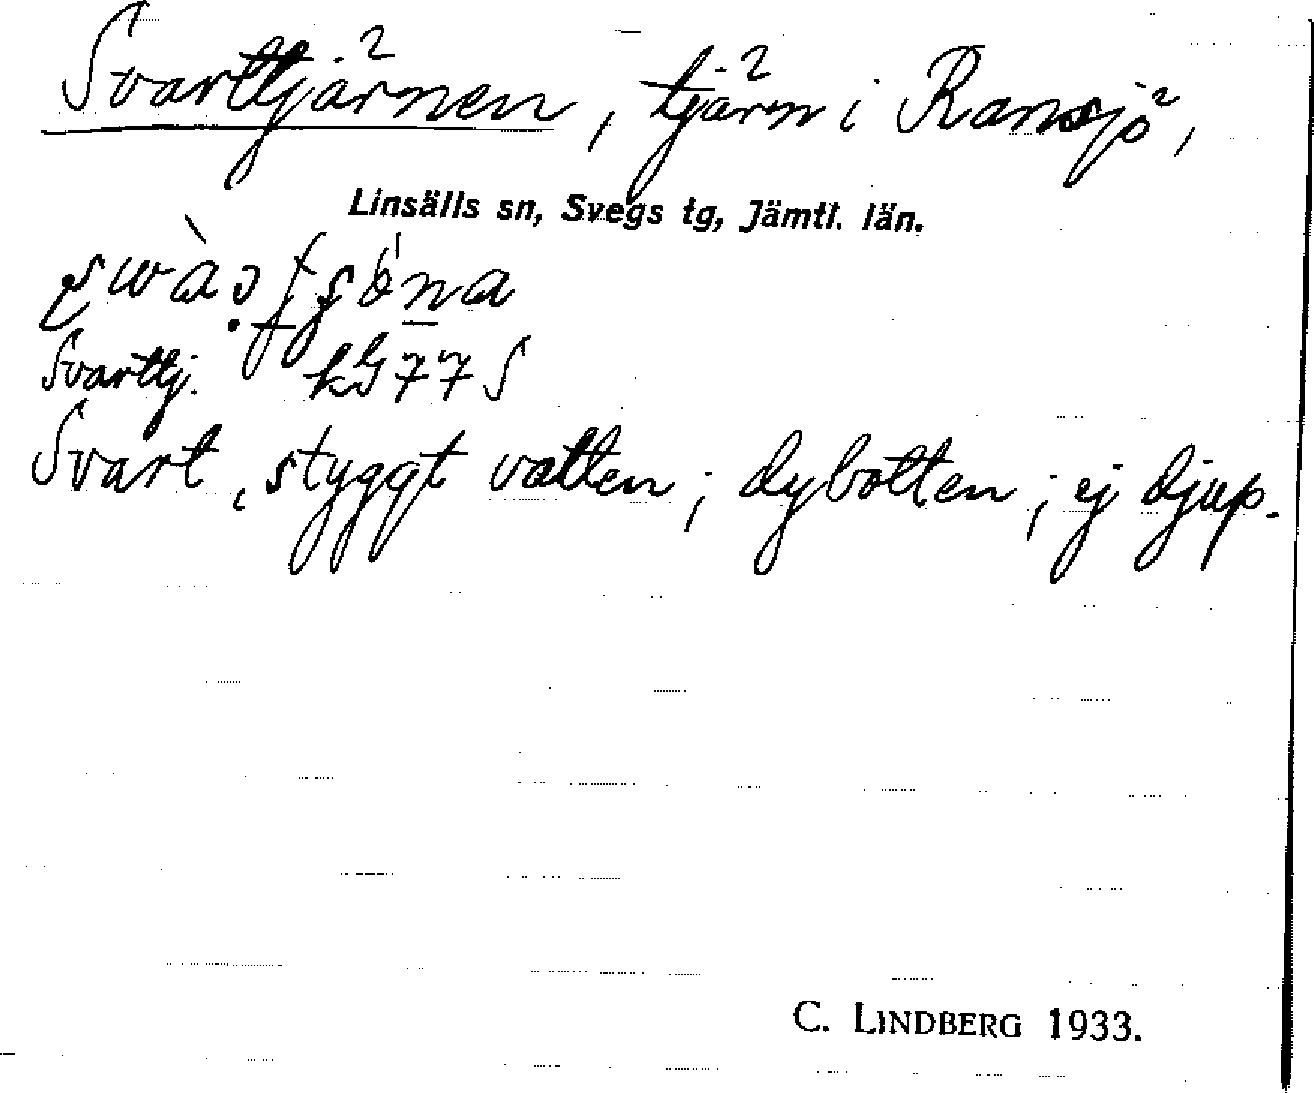 Svarttjärnen, tjärn i Ransjö,
Linsälls sn, Svegs tg, Jämtl. län.
Svarttj. kG77S
Svart, styggt vatten; dybotten; ej djup.
C. LINDBERG 1933.